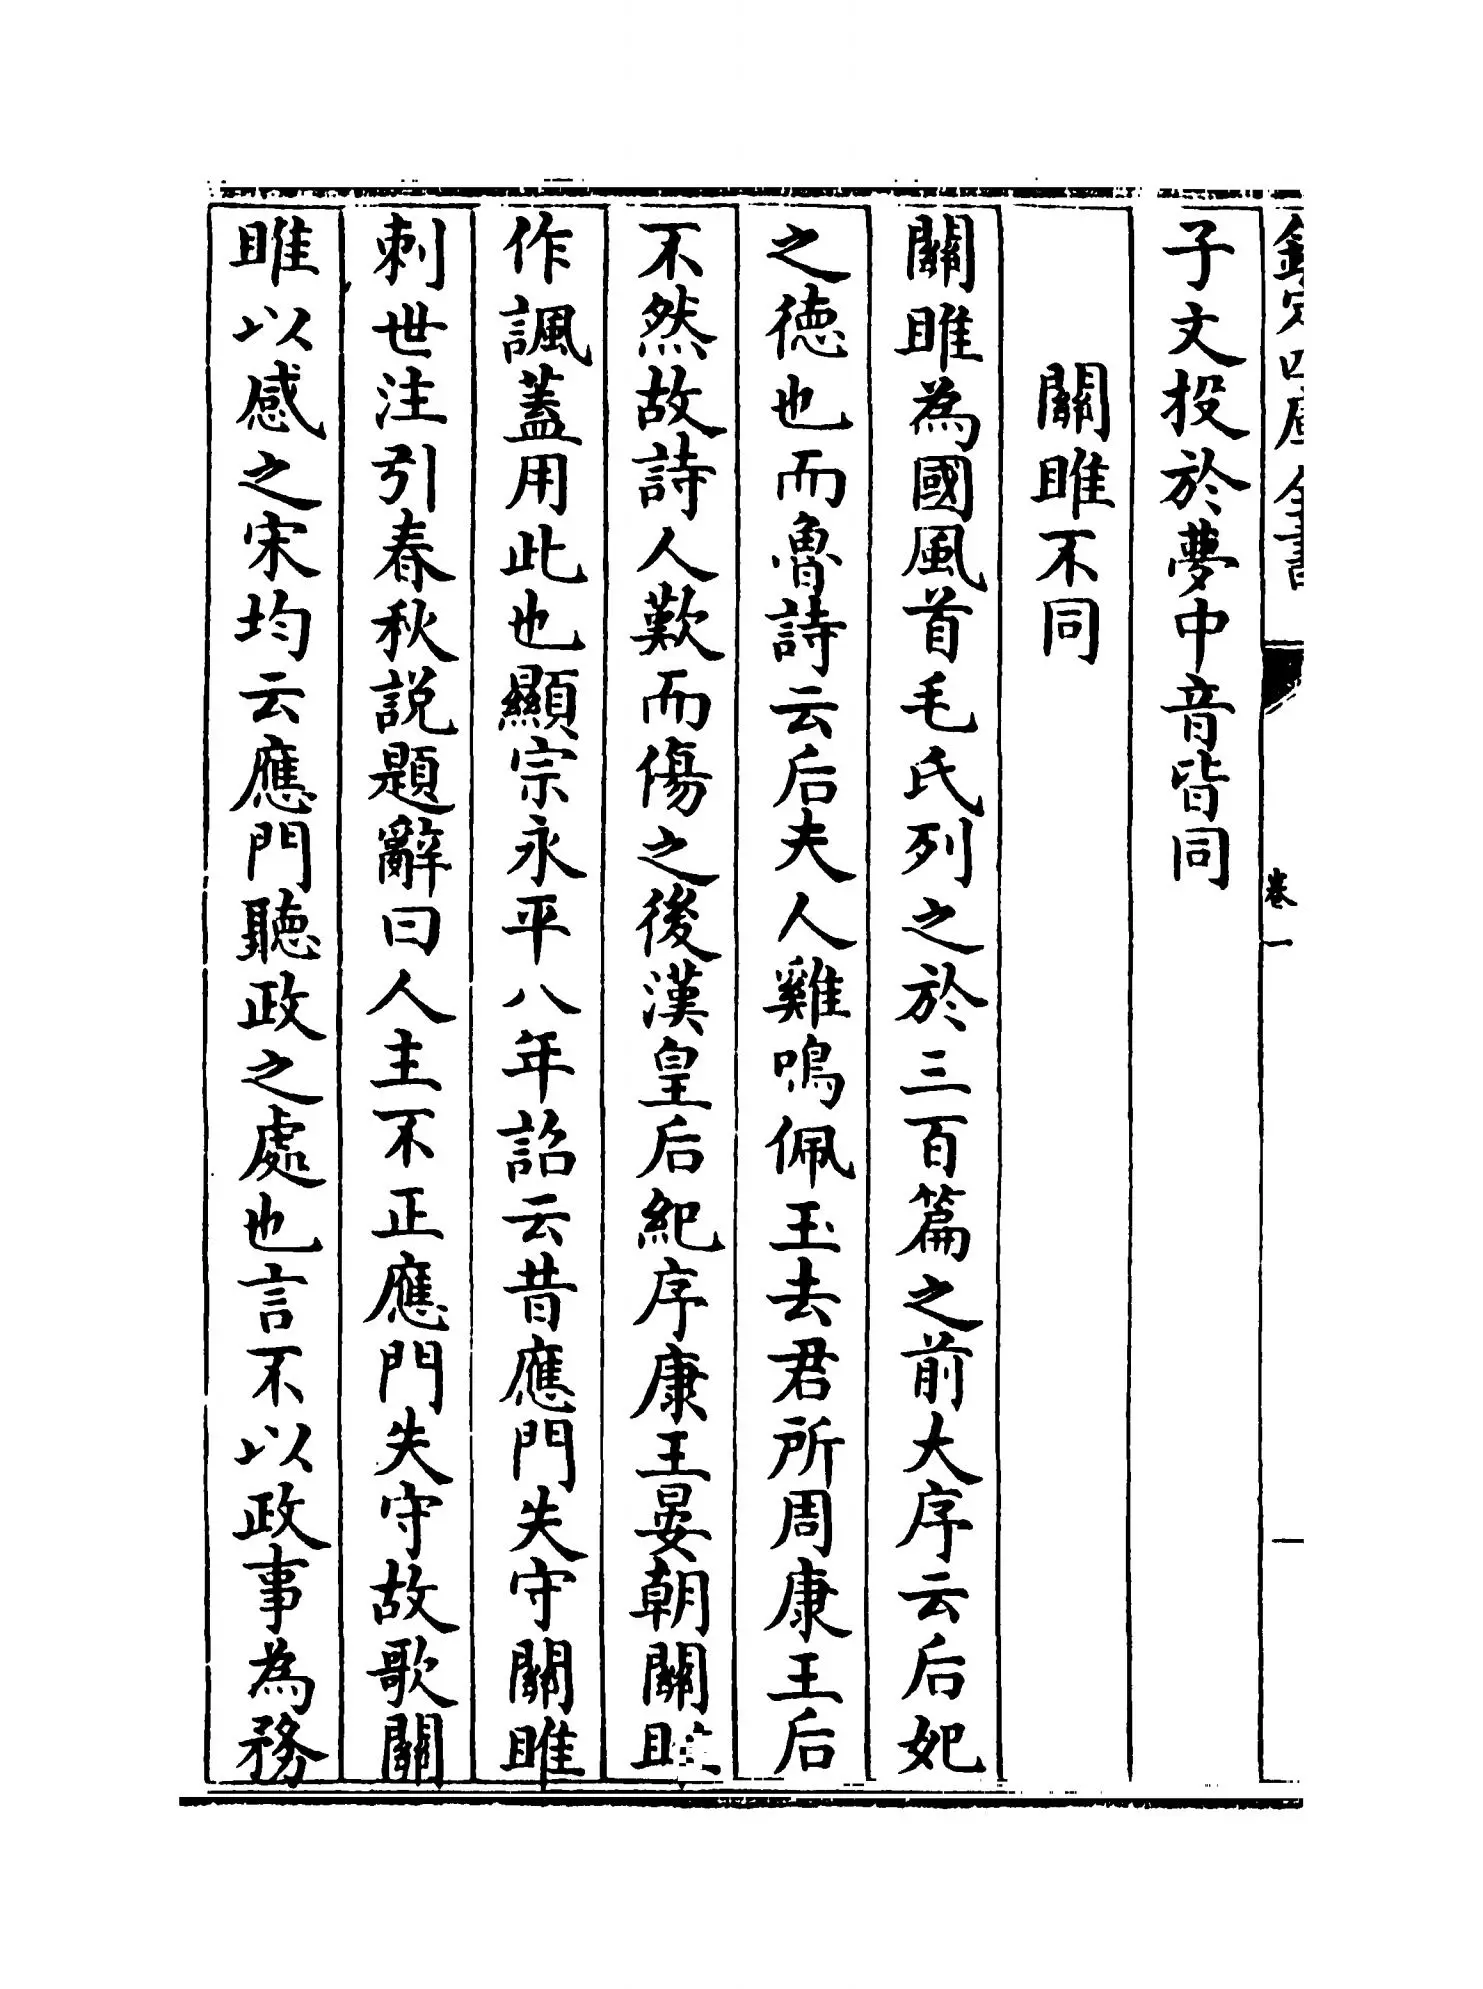 欽定四庫全書
卷一
子文投於夢中音皆同
關雎不同
關雎為國風首毛氏列之於三百篇之前大序云后妃
之徳也而魯詩云后夫人雞鳴佩玉去君所周康王后
不然故詩人歎而傷之後漢皇后紀序康王晏朝關雎
作諷蓋用此也顯宗永平八年詔云昔應門失守關雎
刺世注引春秋説題辭曰人主不正應門失守故歌關
雎以感之宋均云應門聽政之處也言不以政事為務